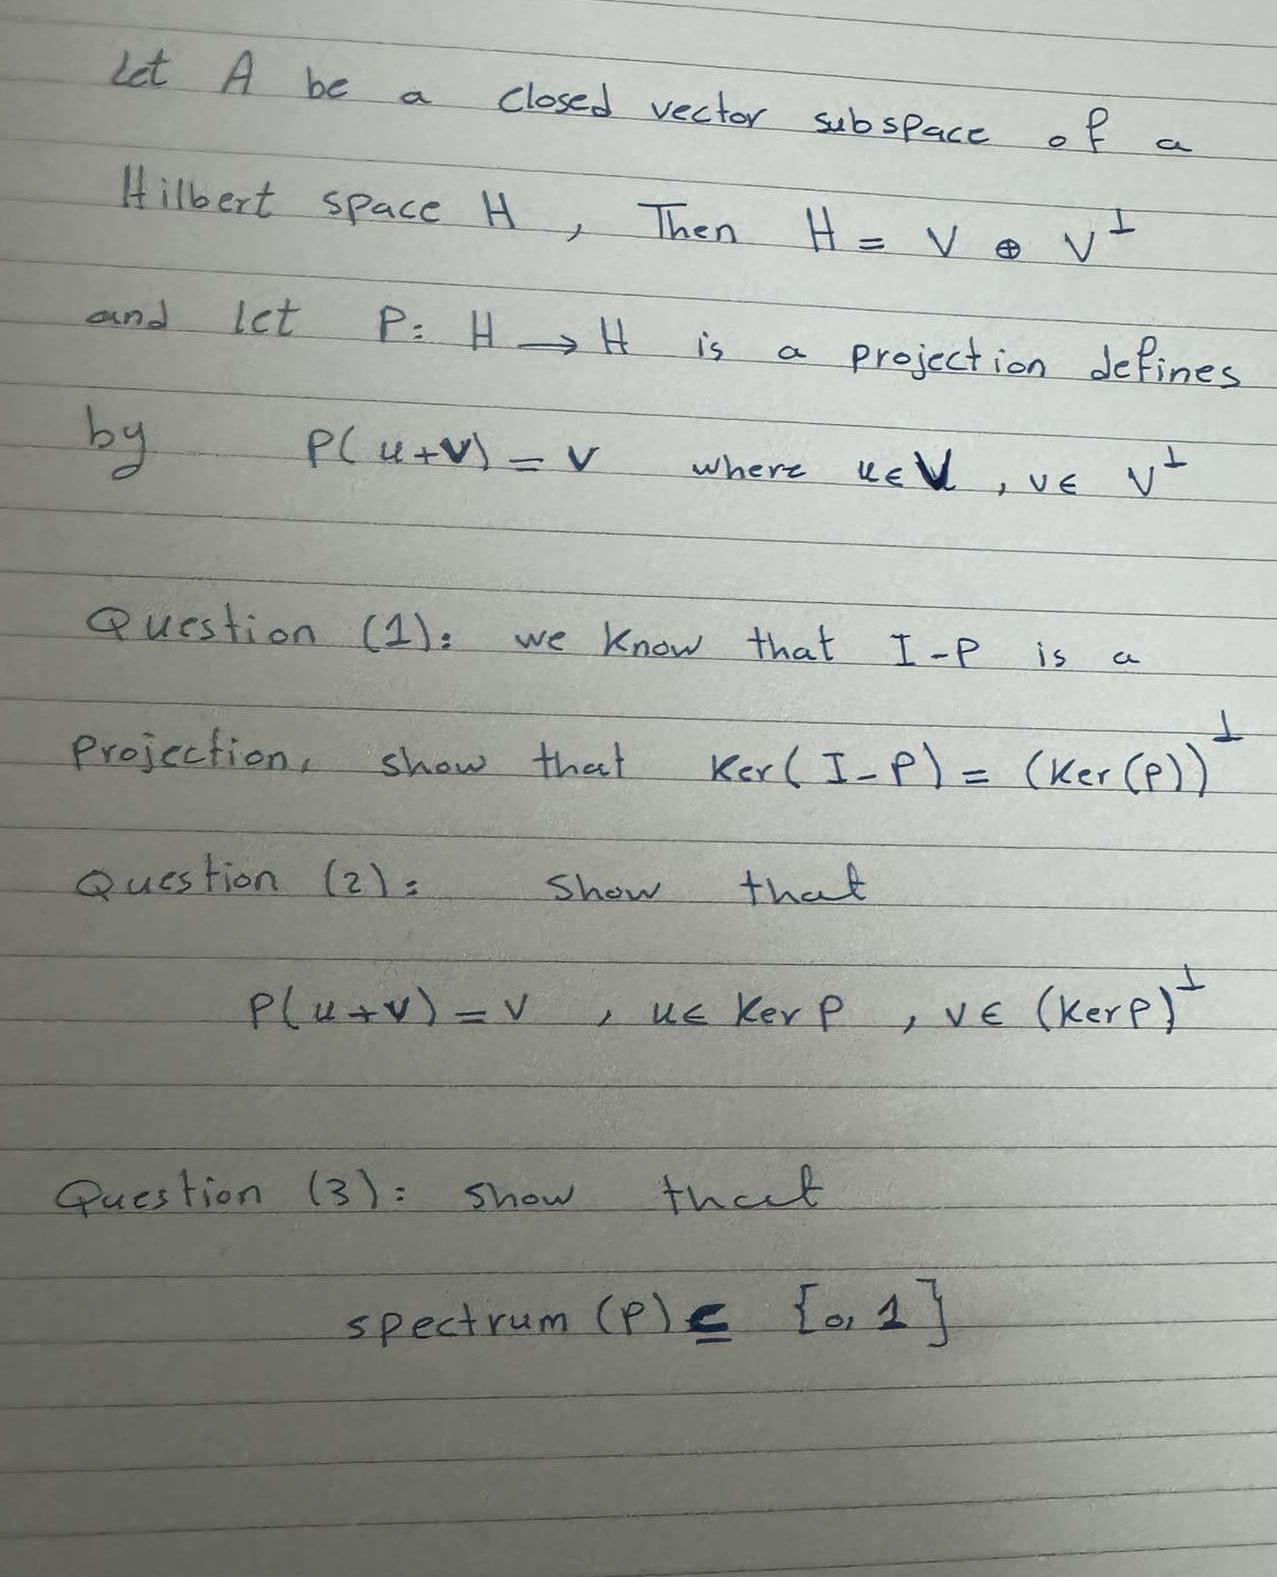 Let A be a closed vector subspace of a
Hilbert space H, Then H = V ⊕ V⊥
and let P: H → H is a projection defines
by P(u+v) = v where u∈V, v∈ V⊥
Question (1): we know that I-P is a
projection, show that Ker(I-P) = (Ker(P))⊥
Question (2): show that
P(u+v) = v , u∈ Ker P , v∈ (Ker P)⊥
Question (3): show that
spectrum (P) ⊆ {0, 1}